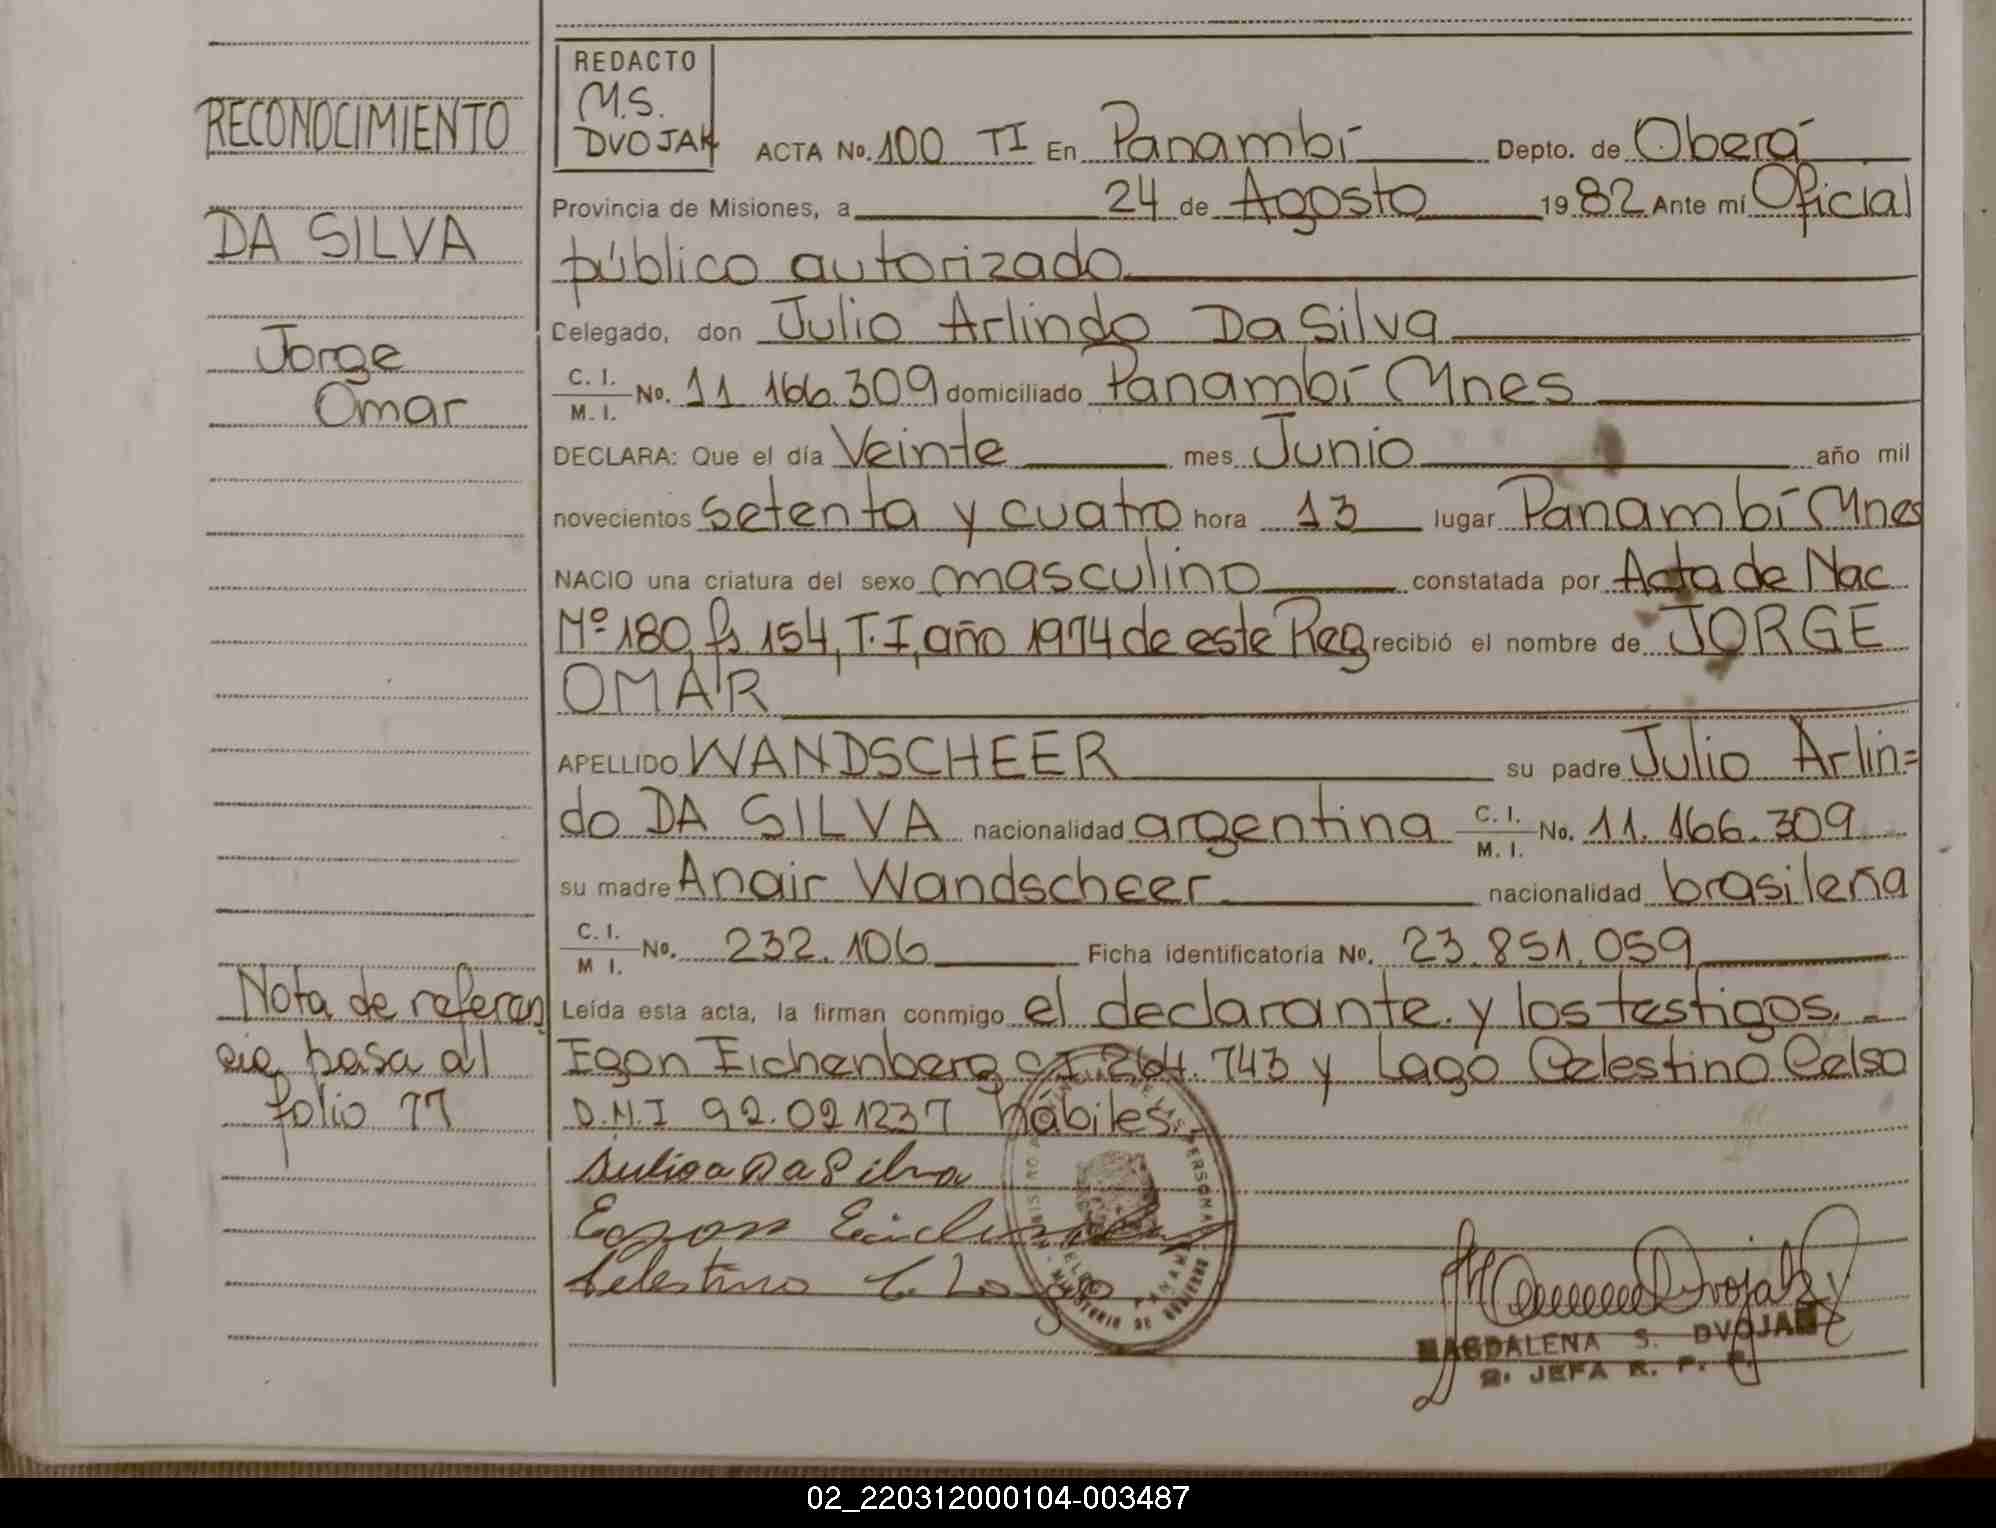 RECONOCIMIENTO
DA SILVA
Jorge
Omar
Nota de referen
cia pasa al
folio 77
REDACTO
M.S.
DVOJAK
ACTA No. 100 TI En Panambí Depto. de Oberá
Provincia de Misiones, a 24 de Agosto 1982 Ante mí Oficial
público autorizado
Celegado, don Julio Arlindo Da Silva
C. I. / M. I. No. 11 166.309 domiciliado Panambí Mnes
DECLARA: Que el día Veinte mes Junio año mil
novecientos setenta y cuatro hora 13 lugar Panambí Mnes
NACIO una criatura del sexo masculino constatada por Acta de Nac
Nº 180, fs 154, T.I, año 1974 de este Reg recibió el nombre de JORGE
OMAR
APELLIDO WANDSCHEER su padre Julio Arlin=
do DA SILVA nacionalidad argentina C. I. / M. I. No. 11.166.309
su madre Anair Wandscheer nacionalidad brasileña
C. I. / M I. No. 232.106 Ficha identificatoria No. 23.851.059
Leída esta acta, la firman conmigo el declarante y los testigos.-
Egon Eichenberg C.I. 264.743 y Lago Celestino Celso
D.M.I 92.021237 hábiles.
Julio a Da Silva
Egon
Celestino C. Lago
PANAMBI
MINISTERIO DE GOBIERNO
Dvojak
MAGDALENA S. DVOJAK
JEFA R. P.
02_220312000104-003487